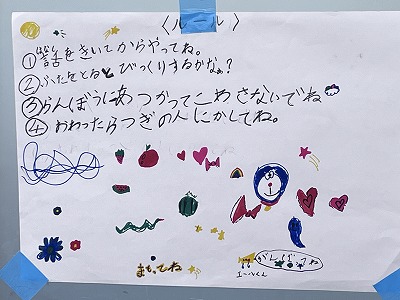 〈ルール〉
①話をきいてからやってね。
②ふたをとるとびっくりするかなぁ?
③らんぼうにあつかってこわさないでね
④おわったらつぎの人にかしてね。
まもってね
エールくん
がんばってね